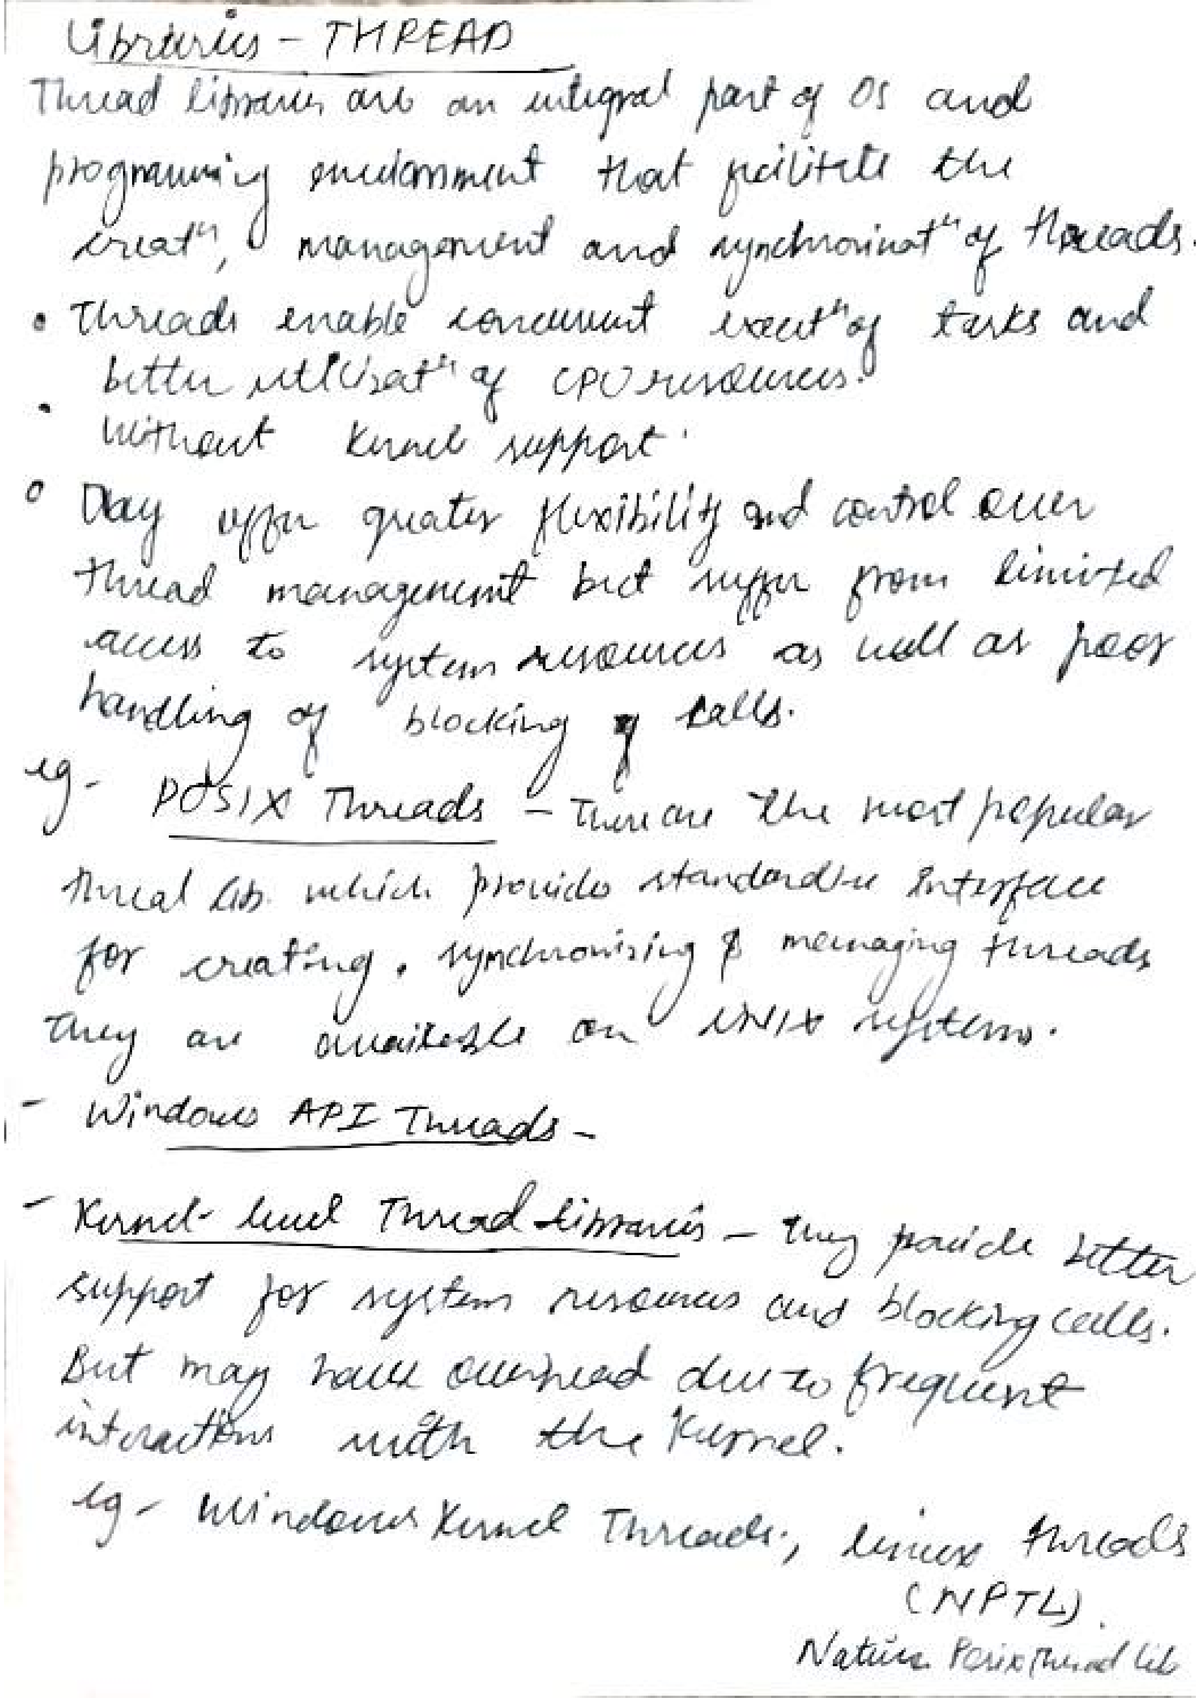 Libraries - THREAD
Thread libraries are an integral part of OS and
programming environment that facilitate the
creatⁿ, management and synchronisatⁿ of threads.
• Threads enable concurrent executⁿ of tasks and
better utilisatⁿ of CPU resources.
• Without Kernel support.
• They offer greater flexibility and control over
thread management but suffer from limited
access to system resources as well as poor
handling of blocking calls.
eg - POSIX Threads - These are the most popular
thread lib. which provides standardize interface
for creating, synchronising & managing threads
they are available on UNIX systems.
- Windows API Threads -
- Kernel-level Thread libraries - they provide better
support for system resources and blocking calls.
But may have overhead due to frequent
interactions with the Kernel.
eg - Windows Kernel Threads, linux threads
(NPTL).
Native Posix Thread Lib